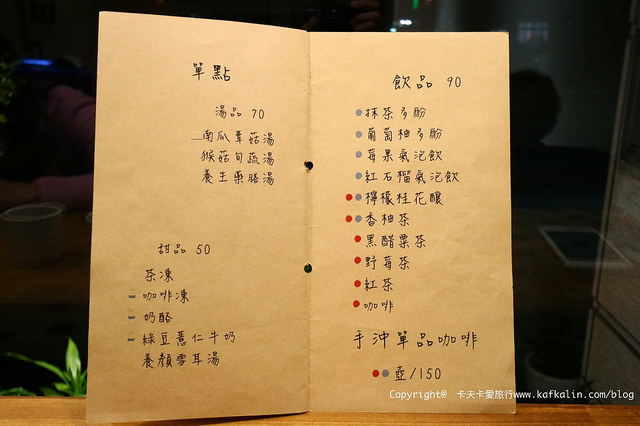 單點
湯品 70
南瓜蕈菇湯
猴菇旬蔬湯
養生藥膳湯
甜品 50
茶凍
咖啡凍
奶酪
綠豆薏仁牛奶
養顏雪耳湯
飲品 90
抹茶多酚
葡萄柚多酚
莓果氣泡飲
紅石榴氣泡飲
檸檬桂花釀
香柚茶
黑醋栗茶
野莓茶
紅茶
咖啡
手沖單品咖啡
壺/150
Copyright@ 卡夫卡愛旅行www.kafkalin.com/blog